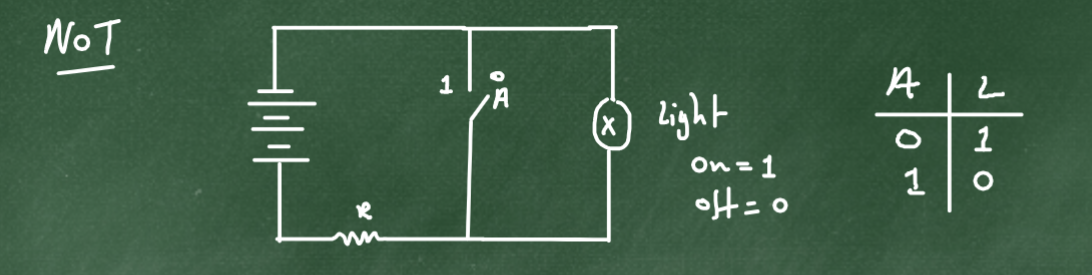 NOT
1 0
A
R
X
Light
on = 1
off = 0
A L
0 1
1 0